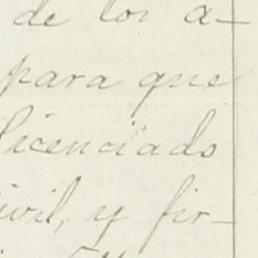 de los a-
para que
licenciado
ivil, y fir-